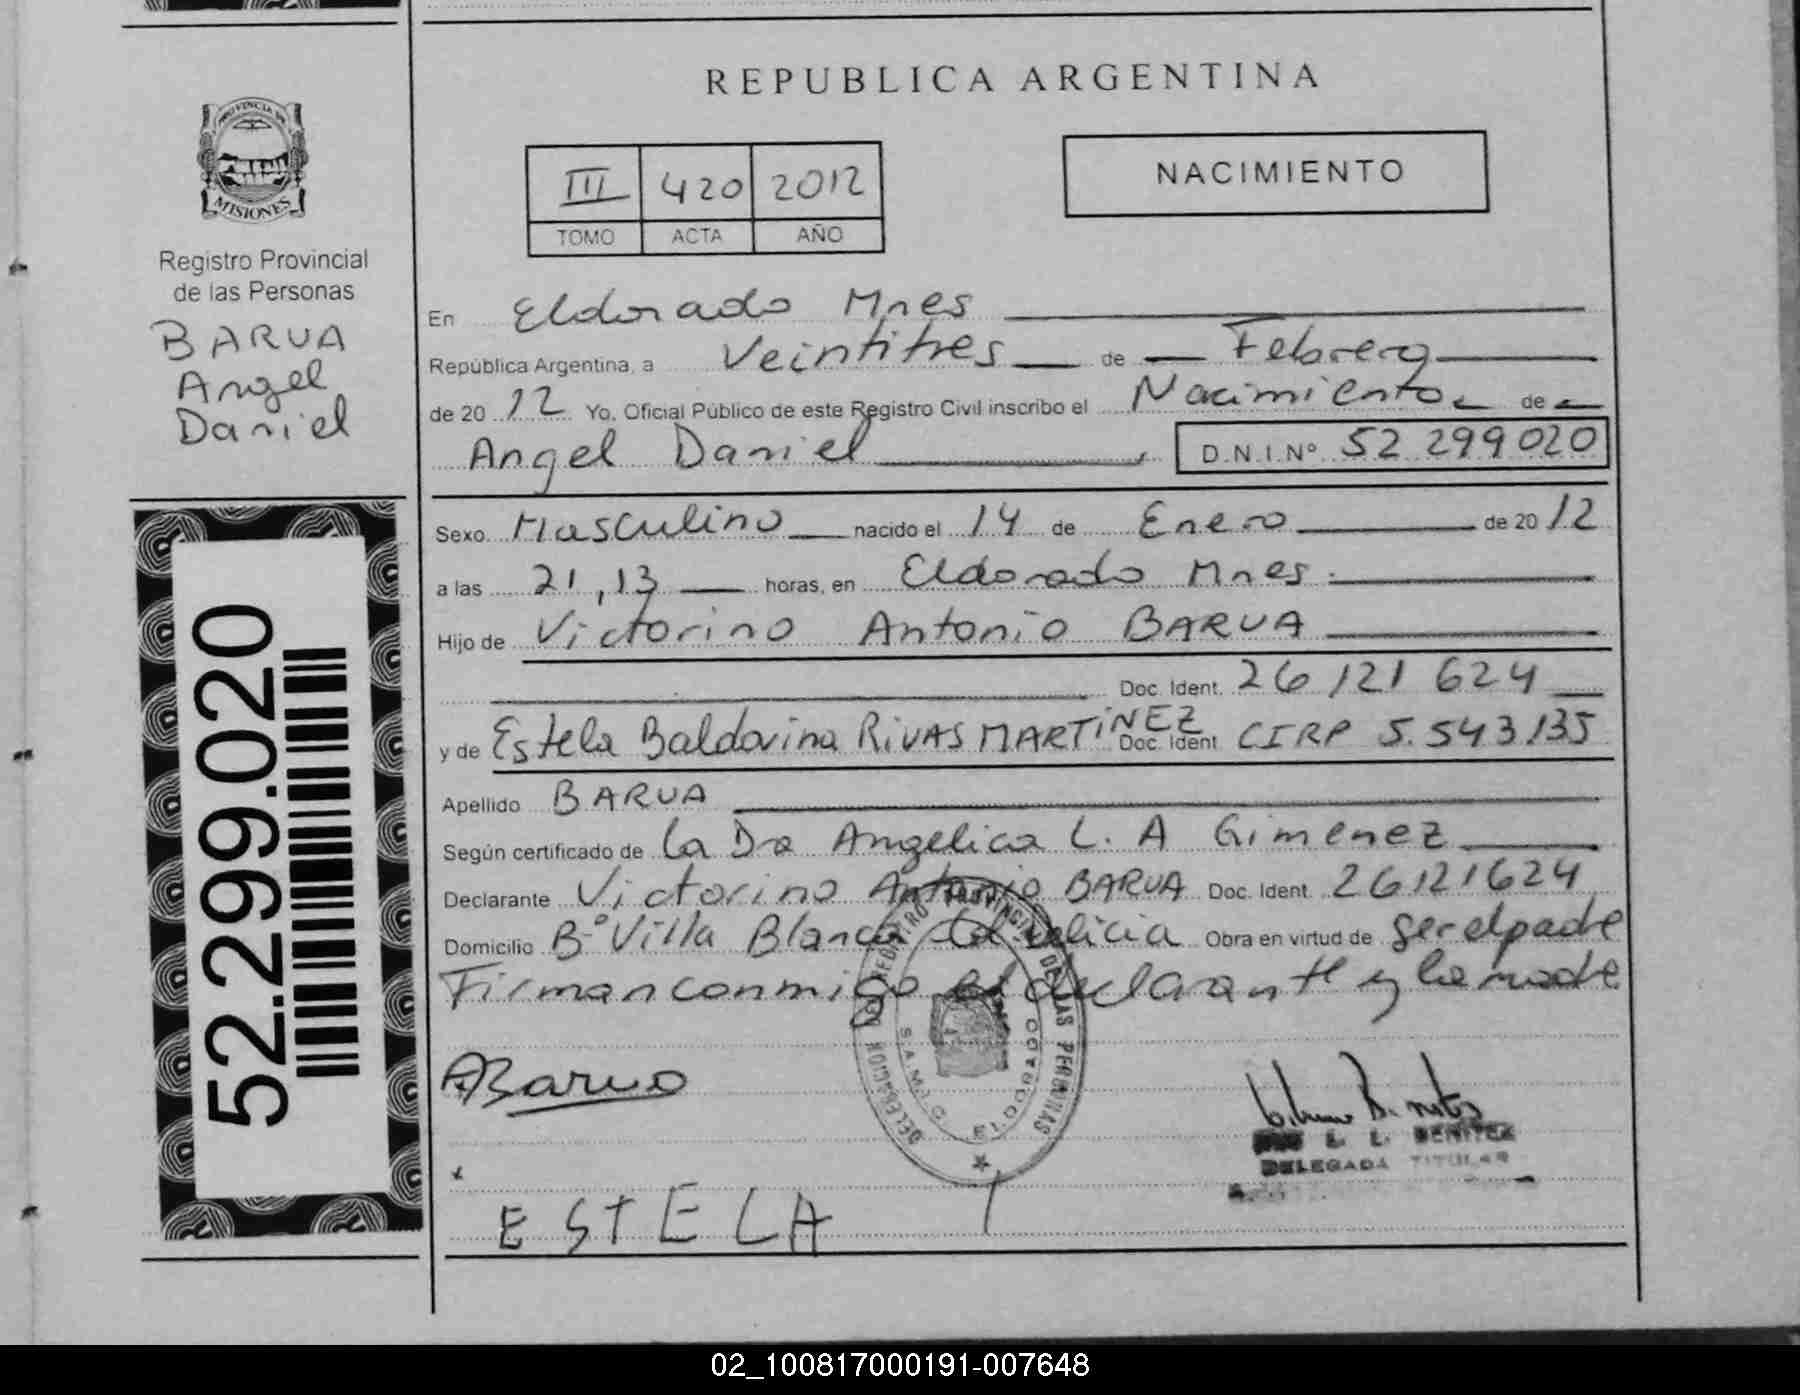 REPUBLICA ARGENTINA
PROVINCIA DE
MISIONES
Registro Provincial
de las Personas
BARUA
Angel
Daniel
52.299.020
III 420 2012
TOMO ACTA AÑO
NACIMIENTO
En Eldorado Mnes
República Argentina, a Veintitres de Febrero
de 20 12 Yo, Oficial Público de este Registro Civil inscribo el Nacimiento de
Angel Daniel D.N.I. Nº 52 299 020
Sexo Masculino nacido el 14 de Enero de 20 12
a las 21,13 horas, en Eldorado Mnes.
Hijo de Victorino Antonio BARUA
Doc. Ident. 26 121 624
y de Estela Baldovina RIVAS MARTINEZ Doc. Ident CIRP 5.543.135
Apellido BARUA
Según certificado de La Dra Angelica L. A Gimenez
Declarante Victorino Antonio BARUA Doc. Ident. 26121624
Domicilio Bº Villa Blanca Delicia Obra en virtud de ser el padre
Firman conmigo el declarante y la madre
ABarua
DELEGACION DEL REGISTRO PROVINCIAL DE LAS PERSONAS
ELDORADO
L. L. BENITEZ
DELEGADA TITULAR
x
ESTELA
02_100817000191-007648